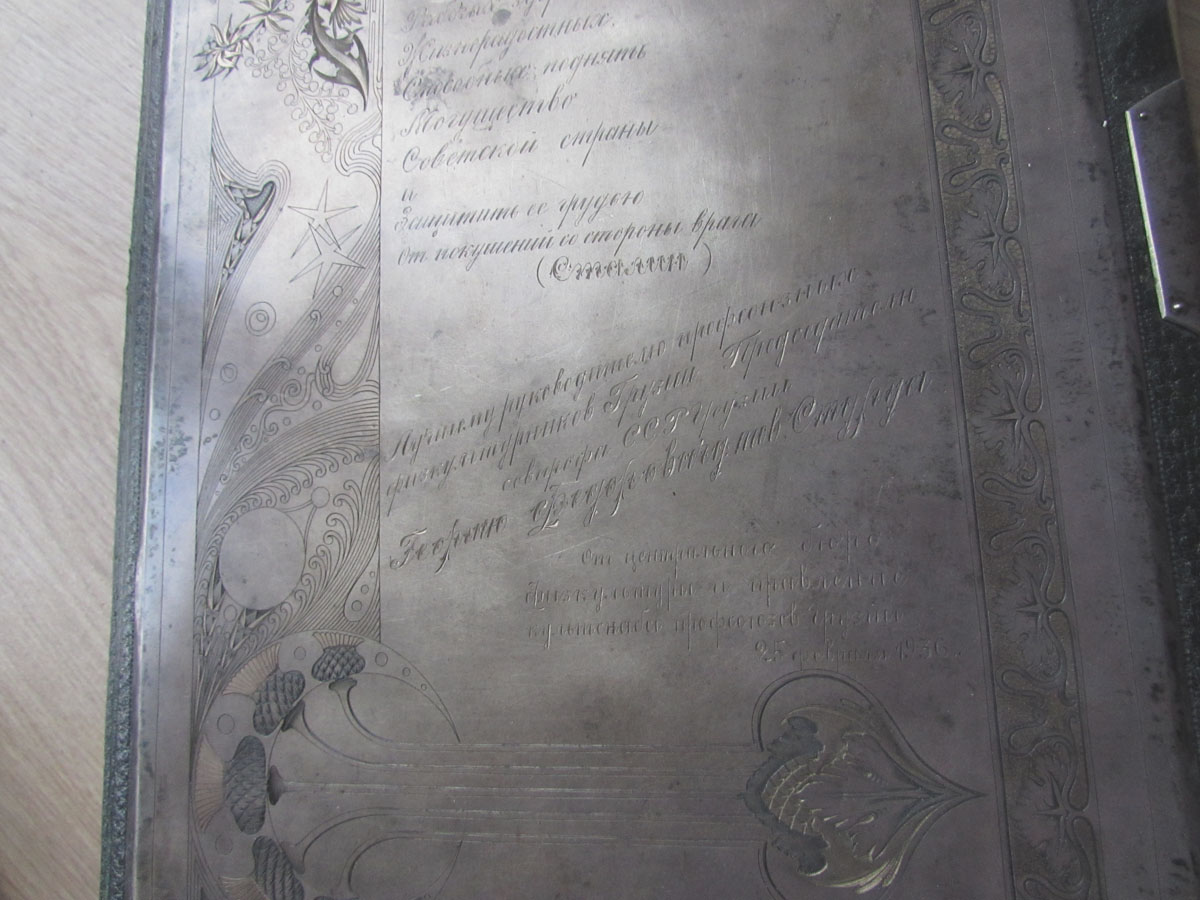 Жизнерадостных.
Способных поднять
Могущество
Советской страны
и
Защитить ее грудью
от покушений со стороны врага
(Сталин)
Лучшему руководителю профсоюзных
физкультурников Грузии Председателю
совпрофа ССР Грузии
Георгию Федоровичу
От центрального бюро
Физкультуры и правления
профсоюзов Грузии
25 февраля 1936.